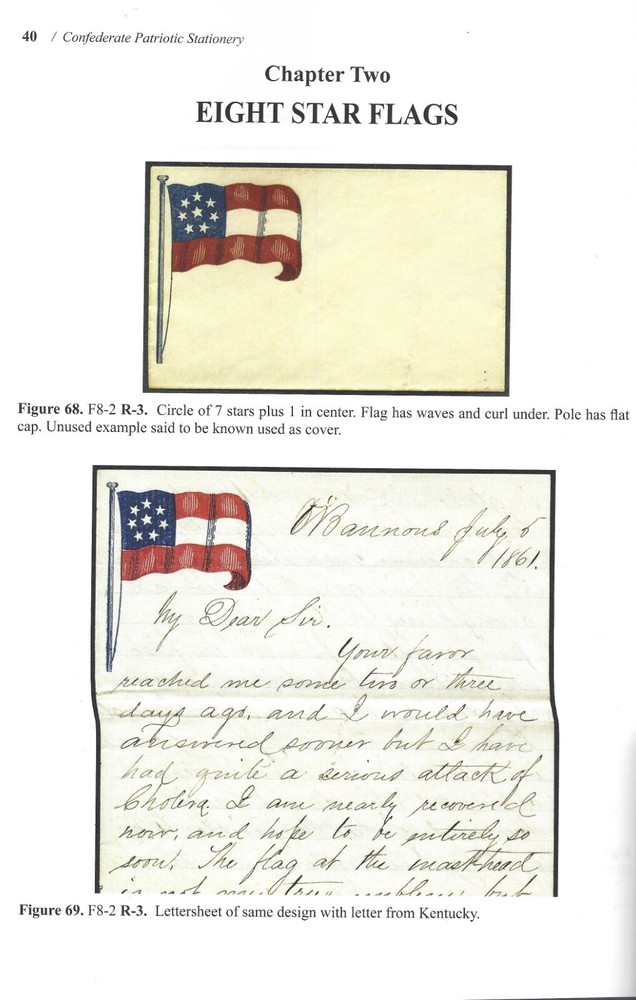 40 / Confederate Patriotic Stationery
Chapter Two
EIGHT STAR FLAGS
Figure 68. F8-2 R-3. Circle of 7 stars plus 1 in center. Flag has waves and curl under. Pole has flat
cap. Unused example said to be known used as cover.
O'Bannons July 5
1861.
My Dear Sir.
Your favor
reached me some two or three
days ago, and I would have
answered sooner but I have
had quite a serious attack of
Cholera. I am nearly recovered
now, and hope to be entirely so
soon. The flag at the masthead
is not my true emblem but
Figure 69. F8-2 R-3. Lettersheet of same design with letter from Kentucky.